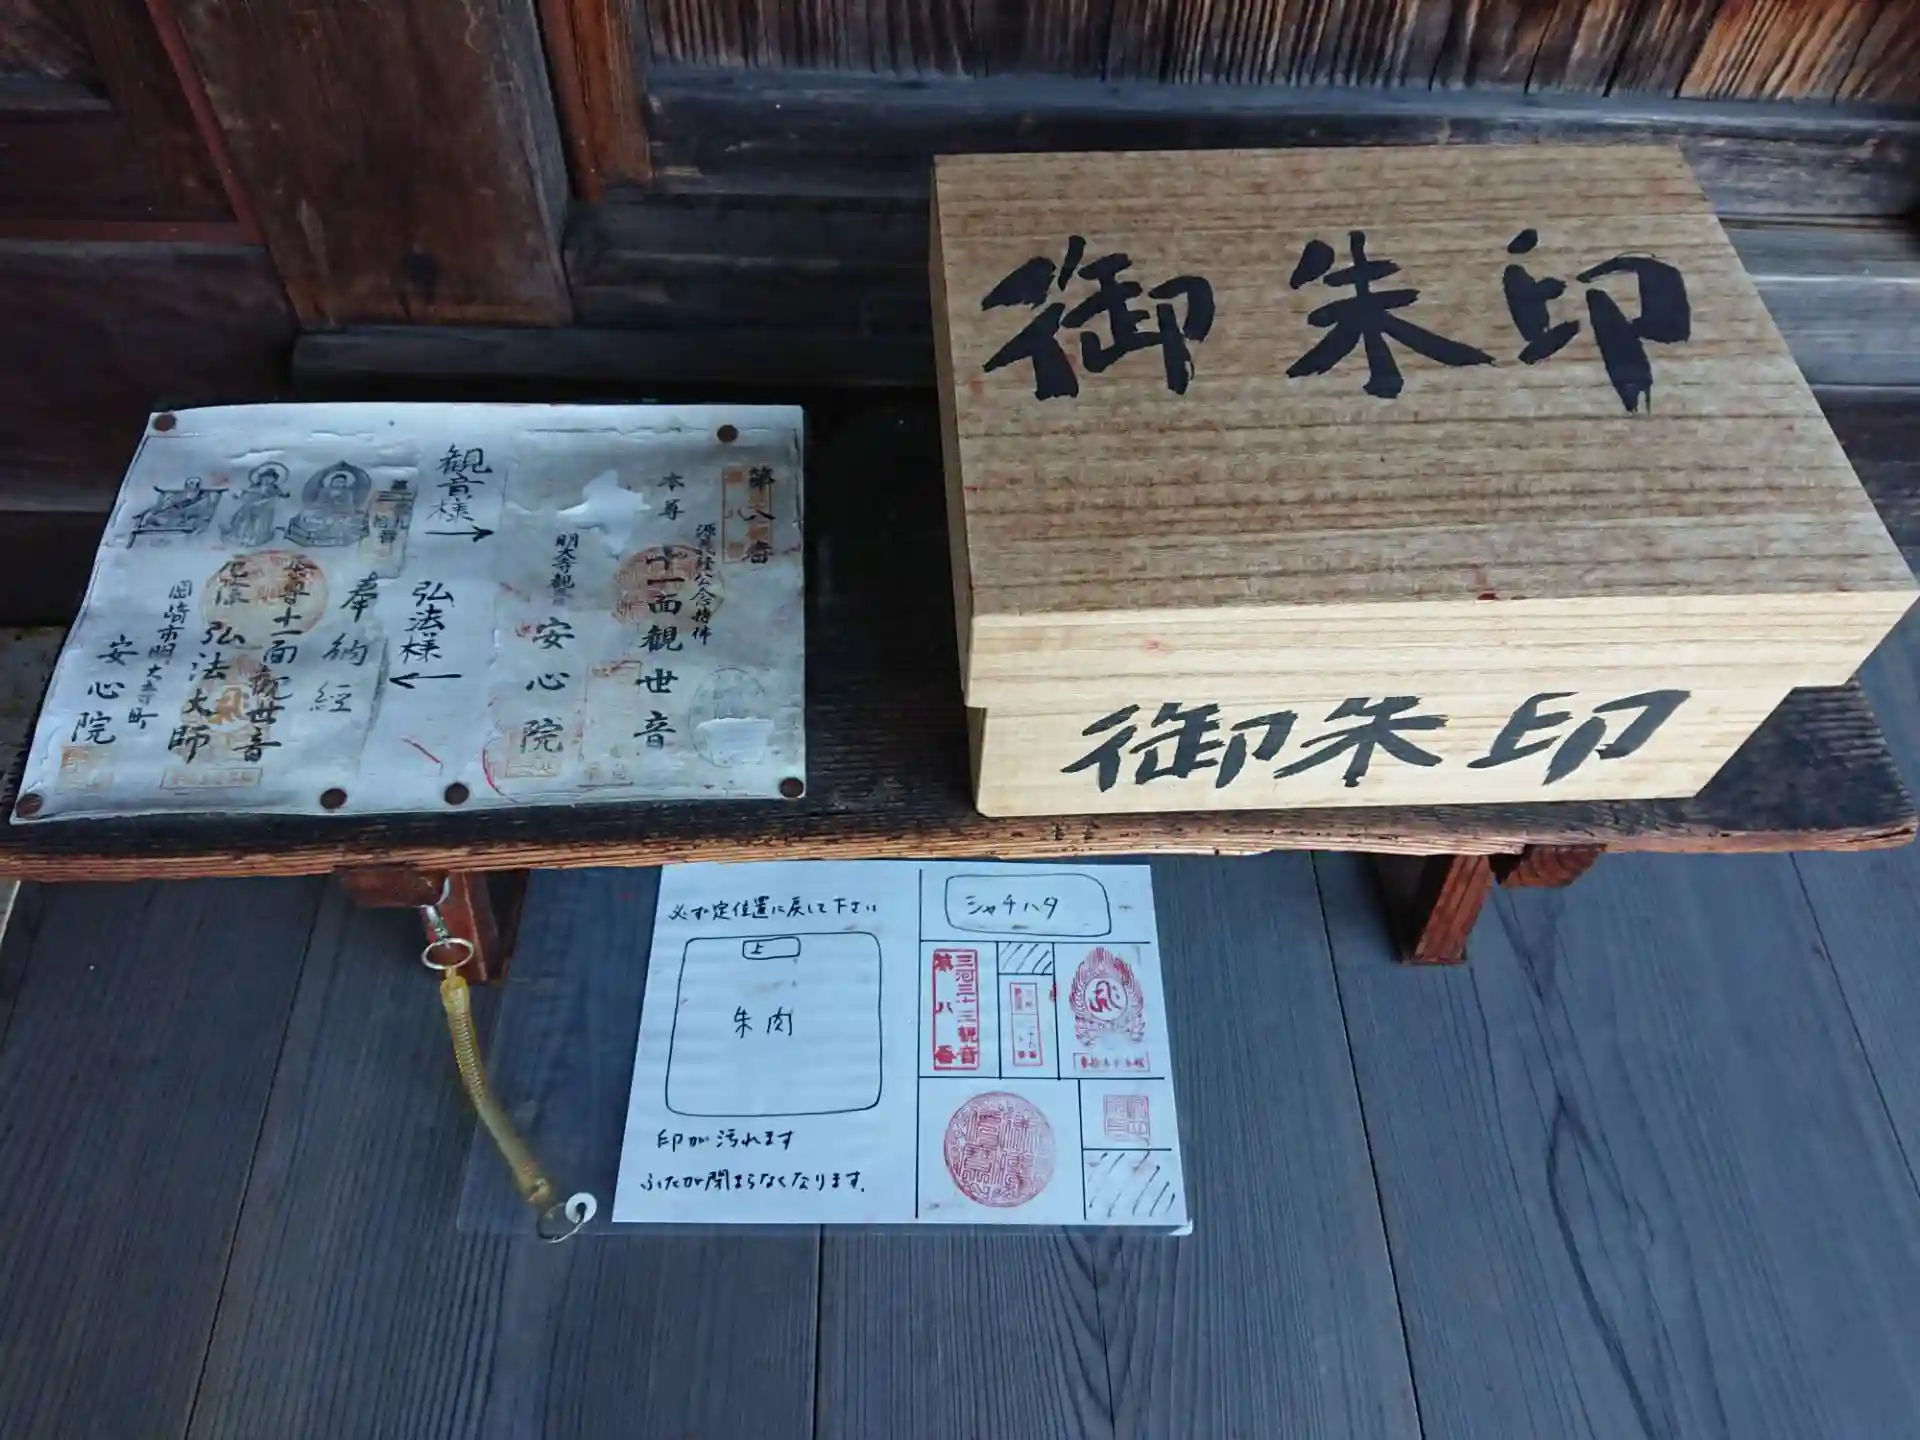 御朱印
御朱印
観音様
弘法様
第八番
源義経公念持仏
本尊 十一面観世音
明大寺観音
安心院
奉納経
本尊十一面観世音
厄除弘法大師
岡崎市明大寺町
安心院
必ず定位置に戻して下さい
上
朱肉
印が汚れます
ふたが閉まらなくなります。
シャチハタ
三河三十三観音
第八番